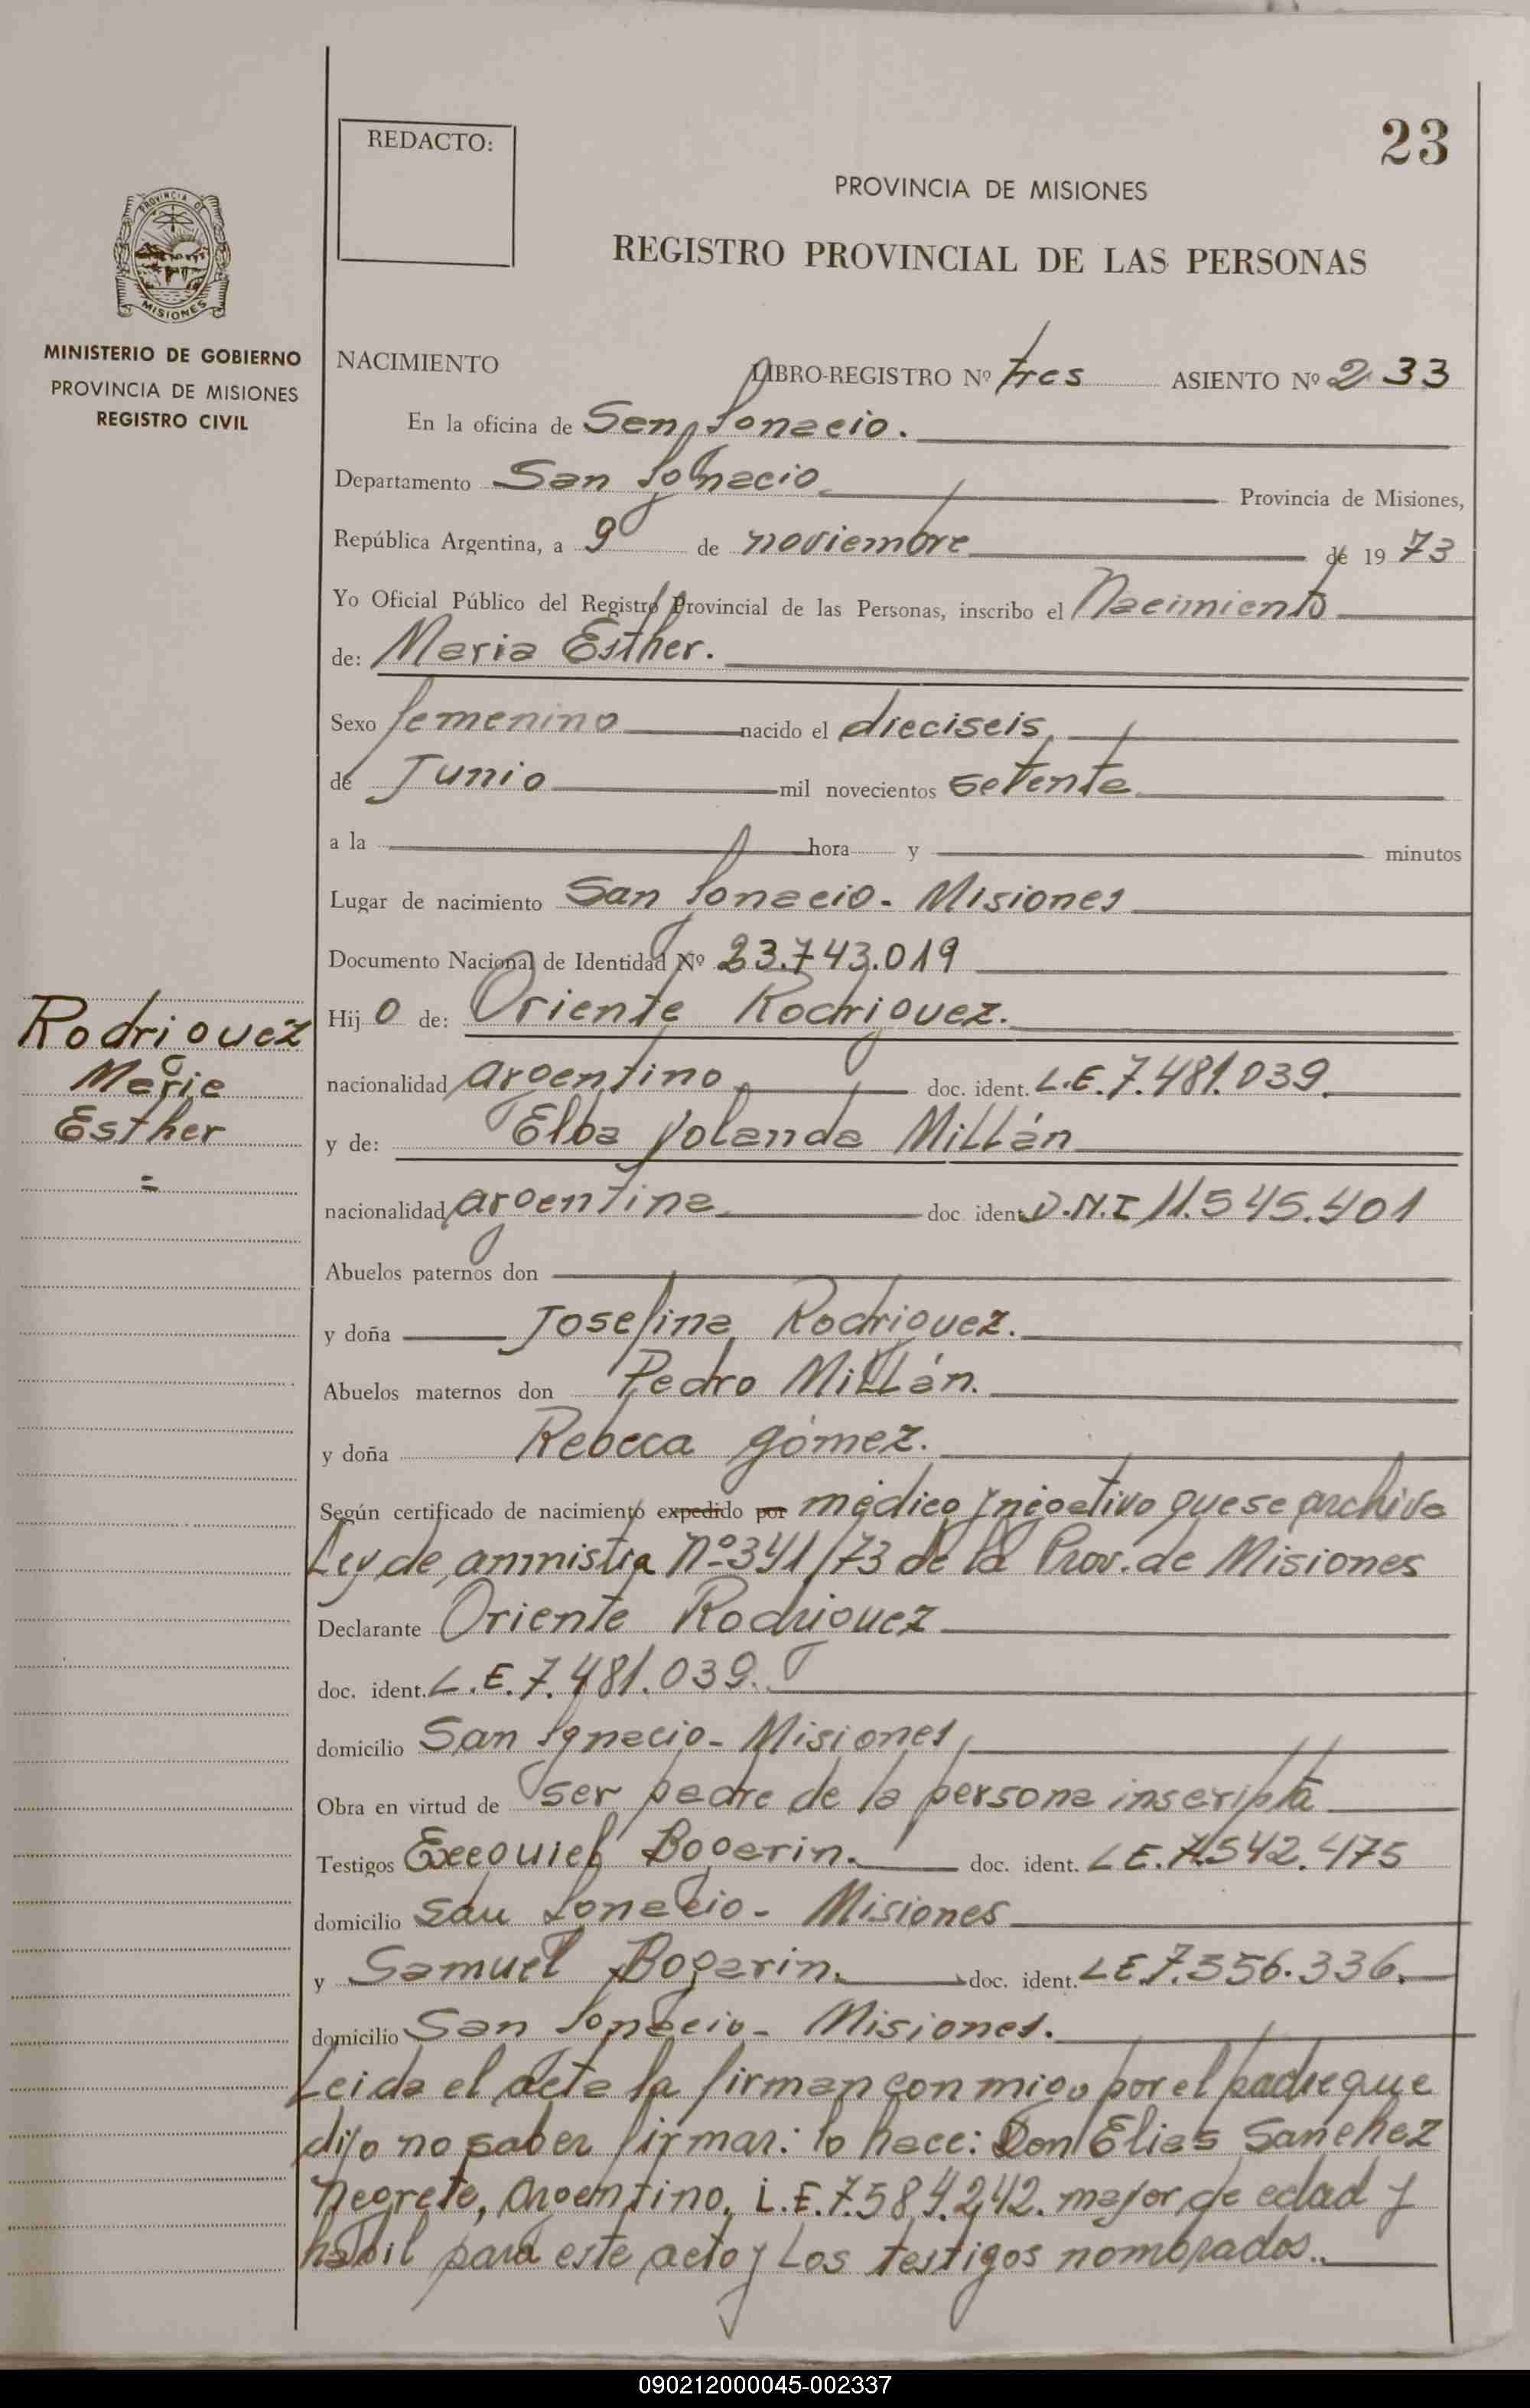 23
REDACTO:
PROVINCIA DE MISIONES
REGISTRO PROVINCIAL DE LAS PERSONAS
PROVINCIA DE
MISIONES
MINISTERIO DE GOBIERNO
PROVINCIA DE MISIONES
REGISTRO CIVIL
NACIMIENTO LIBRO-REGISTRO Nº tres ASIENTO Nº 233
En la oficina de San Ignacio.
Departamento San Ignacio Provincia de Misiones,
República Argentina, a 9 de noviembre de 1973
Yo Oficial Público del Registro Provincial de las Personas, inscribo el Nacimiento
de: Maria Esther.
Sexo femenino nacido el dieciseis
de Junio mil novecientos setenta
a la hora y minutos
Lugar de nacimiento San Ignacio - Misiones
Documento Nacional de Identidad Nº 23.743.019
Hijo de: Oriente Rodriguez.
Rodriguez
Maria
Esther
=
nacionalidad argentino doc. ident. L.E. 7.481.039.
y de: Elba Yolanda Millán
nacionalidad argentina doc. ident. D.N.I 11.545.401
Abuelos paternos don
y doña Josefina Rodriguez.
Abuelos maternos don Pedro Millán.
y doña Rebeca gómez.
Según certificado de nacimiento expedido por médico y negativo que se archiva
Ley de amnistia Nº 341/73 de la Prov. de Misiones
Declarante Oriente Rodriguez
doc. ident. L.E. 7.481.039.
domicilio San Ignacio - Misiones
Obra en virtud de ser padre de la persona inscripta
Testigos Exequiel Bogarin. doc. ident. L E. 7.542.475
domicilio San Ignacio - Misiones
y Samuel Bogarin. doc. ident. L E 7.556.336.
domicilio San Ignacio - Misiones.
Leida el acta la firman conmigo por el padre que
dijo no saber firmar: lo hace: Don Elias Sanchez
Negrete, Argentino, L.E. 7.584.242. mayor de edad y
habil para este acto y Los testigos nombrados.
090212000045-002337